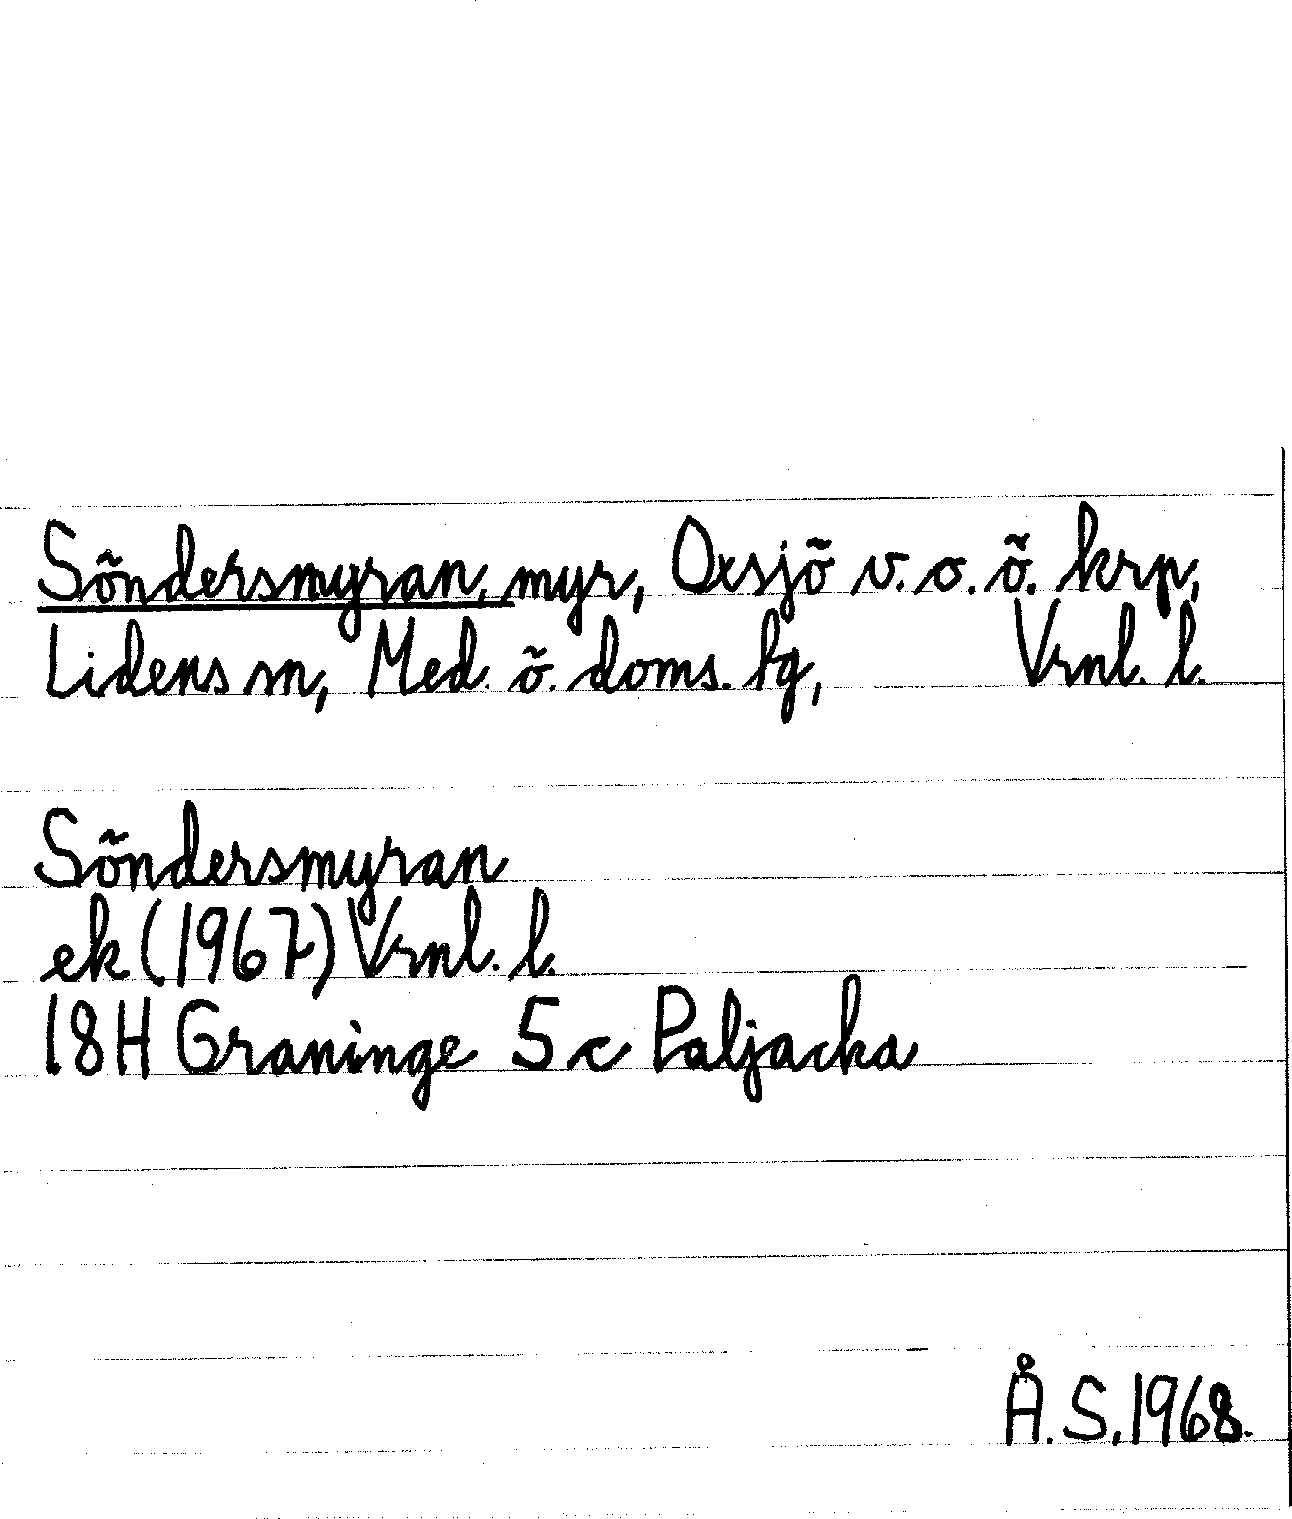 Söndersmyran, myr, Oxsjö v. o. ö. krp,
Lidens sn, Med. ö. doms. fg, Vrnl. l.
Söndersmyran
ek (1967) Vrnl. l.
18H Graninge 5 c Paljacka
Å.S. 1968.